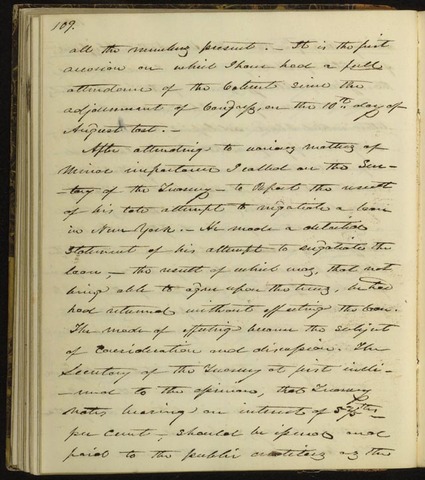 109.
all the members present. - It is the first
occasion on which I have had a full
attendance of the Cabinet since the
adjournment of Congress, on the 10th day of
August last. -
After attending to various matters of
minor importance I called on the Sec-
-tary of the Treasury - to Report the result
of his late attempt to negotiate a loan
in New York. - He made a detailed
statement of his attempt to negotiate the
loan, - the result of which was, that not
being able to agree upon the terms, he had
had returned without effecting the loan.
The mode of effecting became the subject
of consideration and discussion. The
Secretary of the Treasury at first incli-
-ned to the opinion, that Treasury
notes bearing an interest of
per cent, should be issued and
paid to the public creditors as the